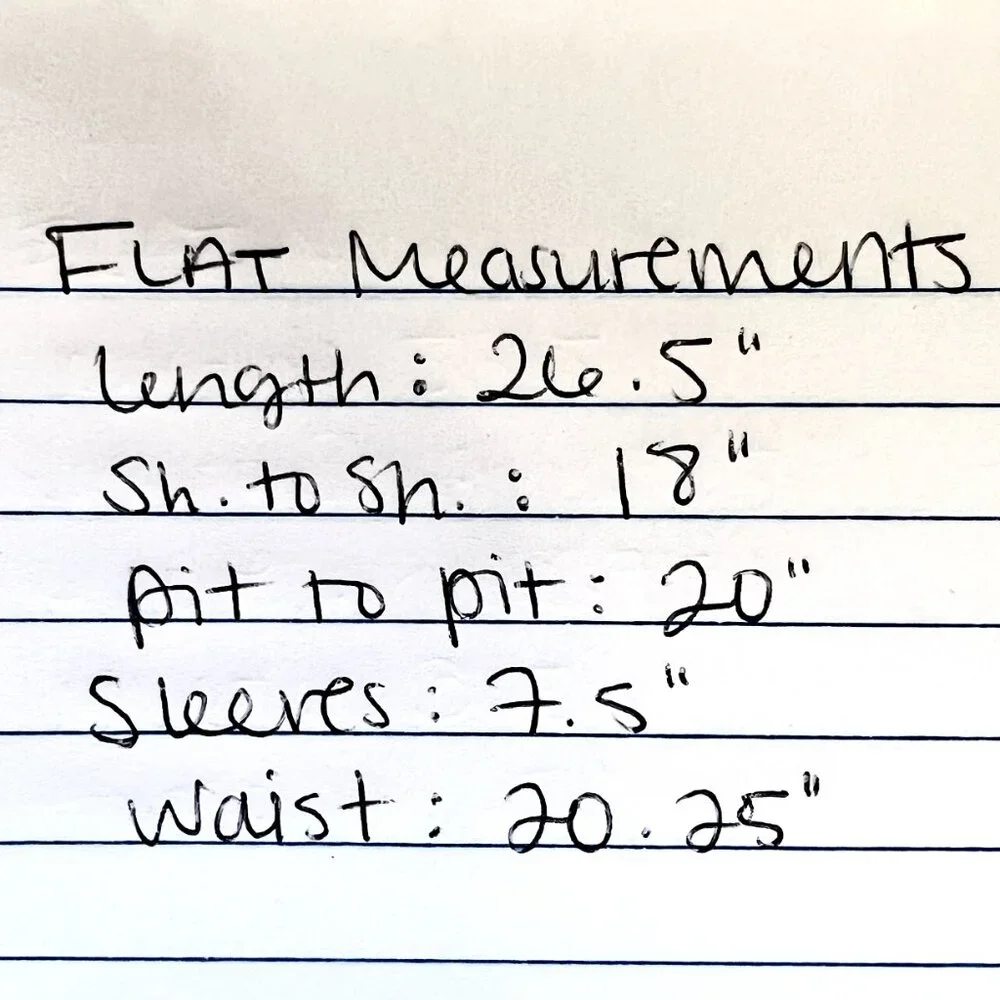 FLAT Measurements
length: 26.5"
Sh. to Sh.: 18"
pit to pit: 20"
Sleeves: 7.5"
Waist: 20.25"